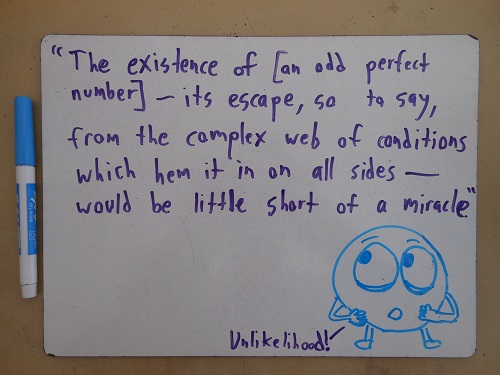 "The existence of [an odd perfect
number] — its escape, so to say,
from the complex web of conditions
which hem it in on all sides —
would be little short of a miracle"
Unlikelihood!